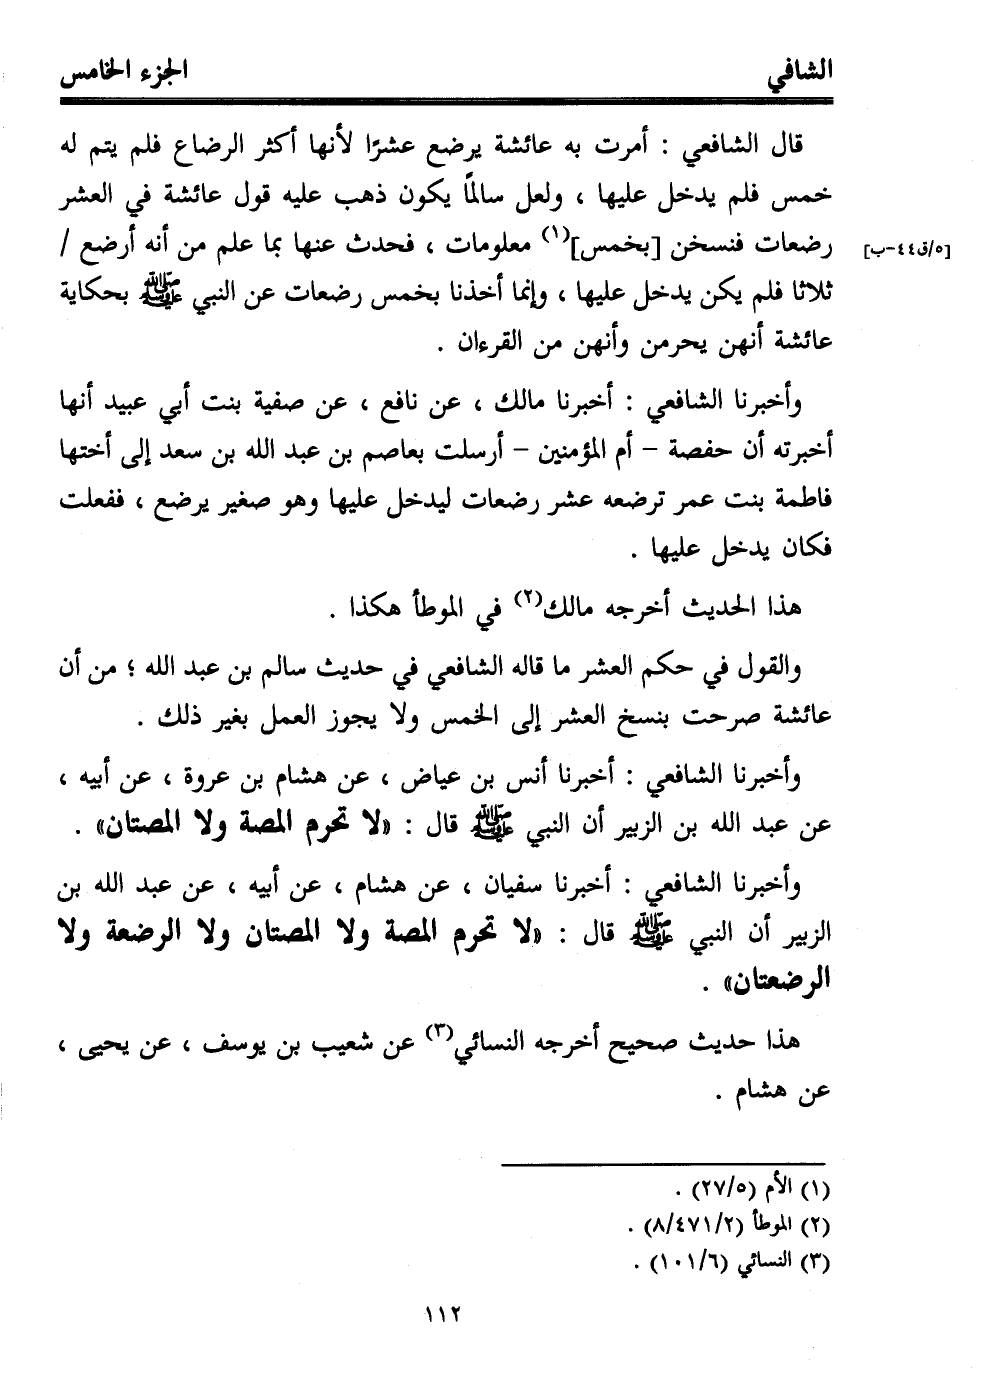 الشافي الجزء الخامس
قال الشافعي : أمرت به عائشة يرضع عشرًا لأنها أكثر الرضاع فلم يتم له
خمس فلم يدخل عليها ، ولعل سالمًا يكون ذهب عليه قول عائشة في العشر
رضعات فنسخن [بخمس](١) معلومات ، فحدث عنها بما علم من أنه أرضع / [٥/ق٤٤-ب]
ثلاثا فلم يكن يدخل عليها ، وإنما أخذنا بخمس رضعات عن النبي ﷺ بحكاية
عائشة أنهن يحرمن وأنهن من القرءان .
وأخبرنا الشافعي : أخبرنا مالك ، عن نافع ، عن صفية بنت أبي عبيد أنها
أخبرته أن حفصة – أم المؤمنين – أرسلت بعاصم بن عبد الله بن سعد إلى أختها
فاطمة بنت عمر ترضعه عشر رضعات ليدخل عليها وهو صغير يرضع ، ففعلت
فكان يدخل عليها .
هذا الحديث أخرجه مالك(٢) في الموطأ هكذا .
والقول في حكم العشر ما قاله الشافعي في حديث سالم بن عبد الله ؛ من أن
عائشة صرحت بنسخ العشر إلى الخمس ولا يجوز العمل بغير ذلك .
وأخبرنا الشافعي : أخبرنا أنس بن عياض ، عن هشام بن عروة ، عن أبيه ،
عن عبد الله بن الزبير أن النبي ﷺ قال : «لا تحرم المصة ولا المصتان» .
وأخبرنا الشافعي : أخبرنا سفيان ، عن هشام ، عن أبيه ، عن عبد الله بن
الزبير أن النبي ﷺ قال : «لا تحرم المصة ولا المصتان ولا الرضعة ولا
الرضعتان» .
هذا حديث صحيح أخرجه النسائي(٣) عن شعيب بن يوسف ، عن يحيى ،
عن هشام .
(١) الأم (٢٧/٥) .
(٢) الموطأ (٨/٤٧١/٢) .
(٣) النسائي (١٠١/٦) .
١١٢